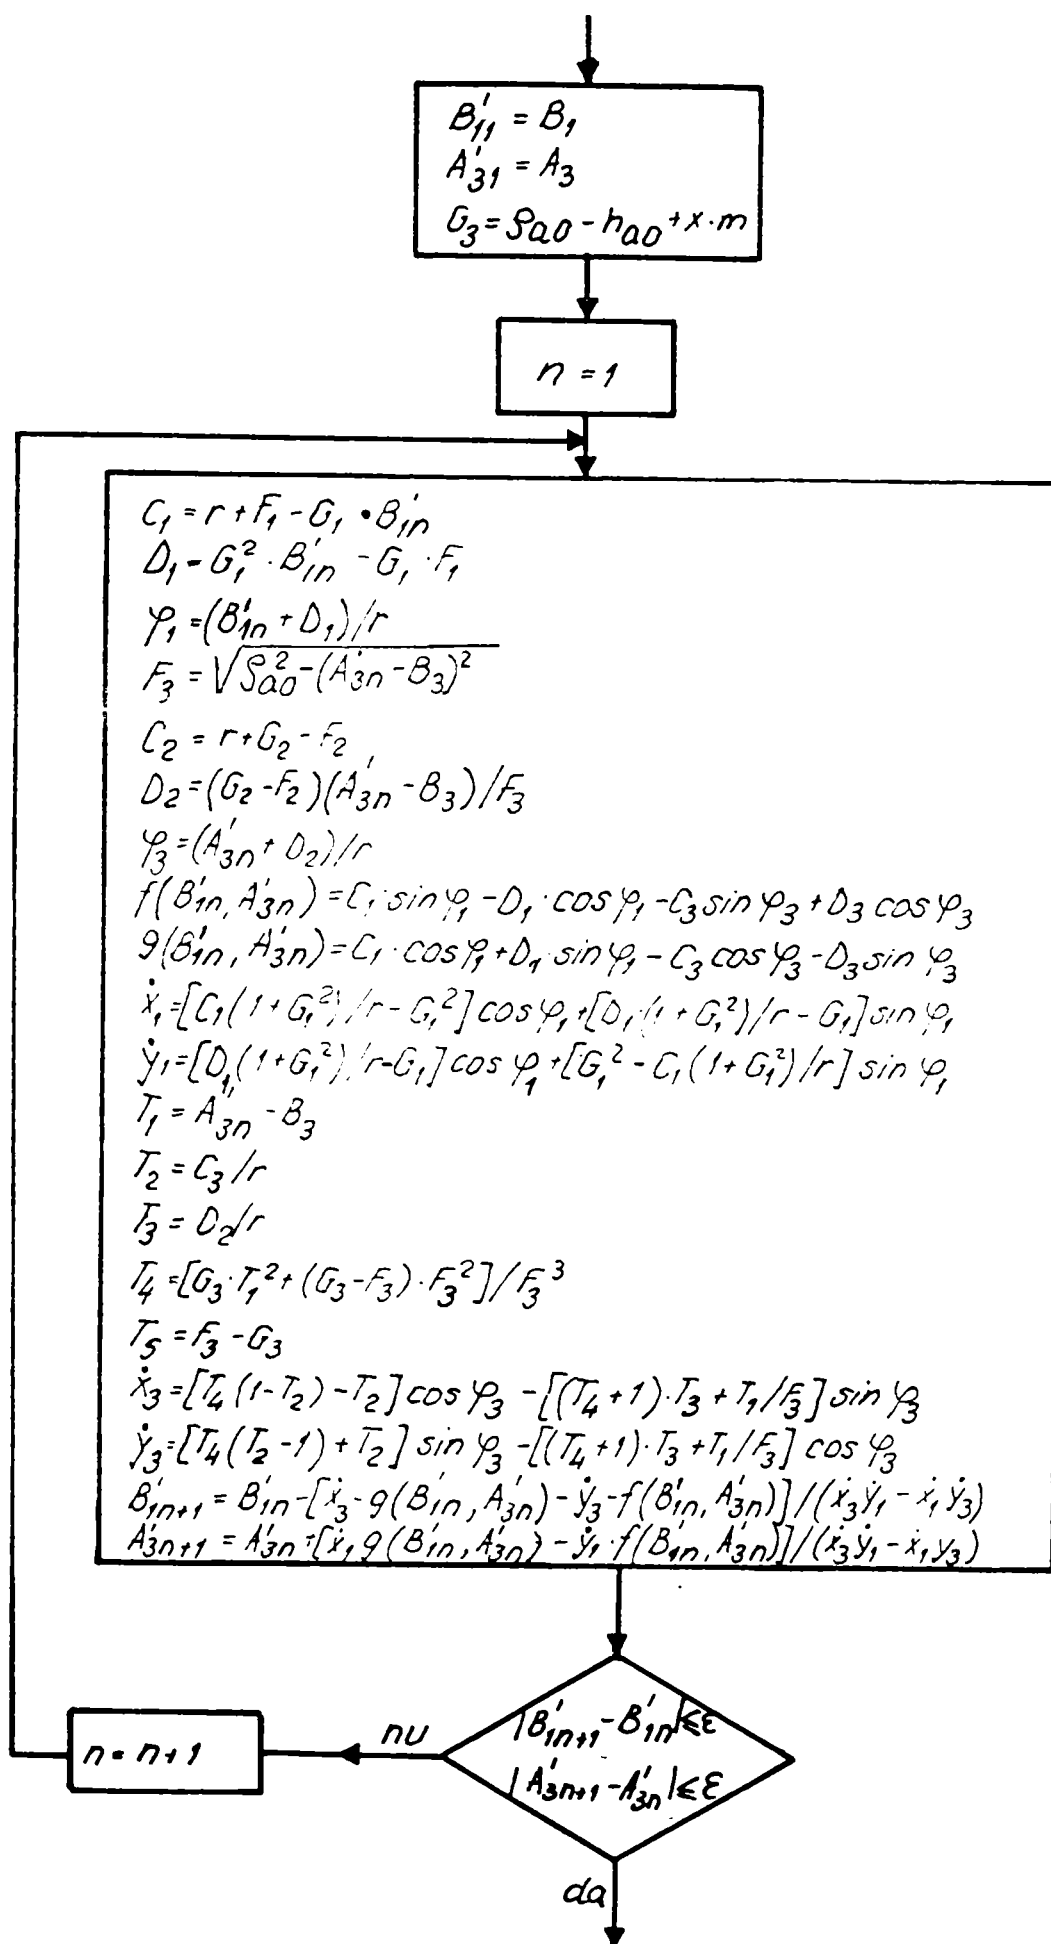 B'₁₁ = B₁
A'₃₁ = A₃
G₃ = ρₐ₀ - hₐ₀ + x·m
n = 1
C₁ = r + F₁ - G₁ • B'₁ₙ
D₁ = G₁² · B'₁ₙ - G₁ · F₁
φ₁ = (B'₁ₙ + D₁)/r
F₃ = √(ρₐ₀² - (A'₃ₙ - B₃)²)
C₂ = r + G₂ - F₂
D₂ = (G₂ - F₂)(A'₃ₙ - B₃)/F₃
φ₃ = (A'₃ₙ + D₂)/r
f(B'₁ₙ, A'₃ₙ) = C₁·sin φ₁ - D₁·cos φ₁ - C₃ sin φ₃ + D₃ cos φ₃
g(B'₁ₙ, A'₃ₙ) = C₁·cos φ₁ + D₁·sin φ₁ - C₃ cos φ₃ - D₃ sin φ₃
ẋ₁ = [C₁(1+G₁²)/r - G₁²] cos φ₁ + [D₁·(1+G₁²)/r - G₁] sin φ₁
ẏ₁ = [D₁(1+G₁²)/r - G₁] cos φ₁ + [G₁² - C₁(1+G₁²)/r] sin φ₁
T₁ = A'₃ₙ - B₃
T₂ = C₃/r
T₃ = D₂/r
T₄ = [G₃·T₁² + (G₃ - F₃)·F₃²]/F₃³
T₅ = F₃ - G₃
ẋ₃ = [T₄(1-T₂) - T₂] cos φ₃ - [(T₄+1)·T₃ + T₁/F₃] sin φ₃
ẏ₃ = [T₄(T₂-1) + T₂] sin φ₃ - [(T₄+1)·T₃ + T₁/F₃] cos φ₃
B'₁ₙ₊₁ = B'₁ₙ - [ẋ₃ - g(B'₁ₙ, A'₃ₙ) - ẏ₃ - f(B'₁ₙ, A'₃ₙ)]/(ẋ₃ẏ₁ - ẋ₁ẏ₃)
A'₃ₙ₊₁ = A'₃ₙ + [ẋ₁ g(B'₁ₙ, A'₃ₙ) - ẏ₁·f(B'₁ₙ, A'₃ₙ)]/(ẋ₃ẏ₁ - ẋ₁ẏ₃)
|B'₁ₙ₊₁ - B'₁ₙ| ≤ ε
|A'₃ₙ₊₁ - A'₃ₙ| ≤ ε
nu
n = n+1
da